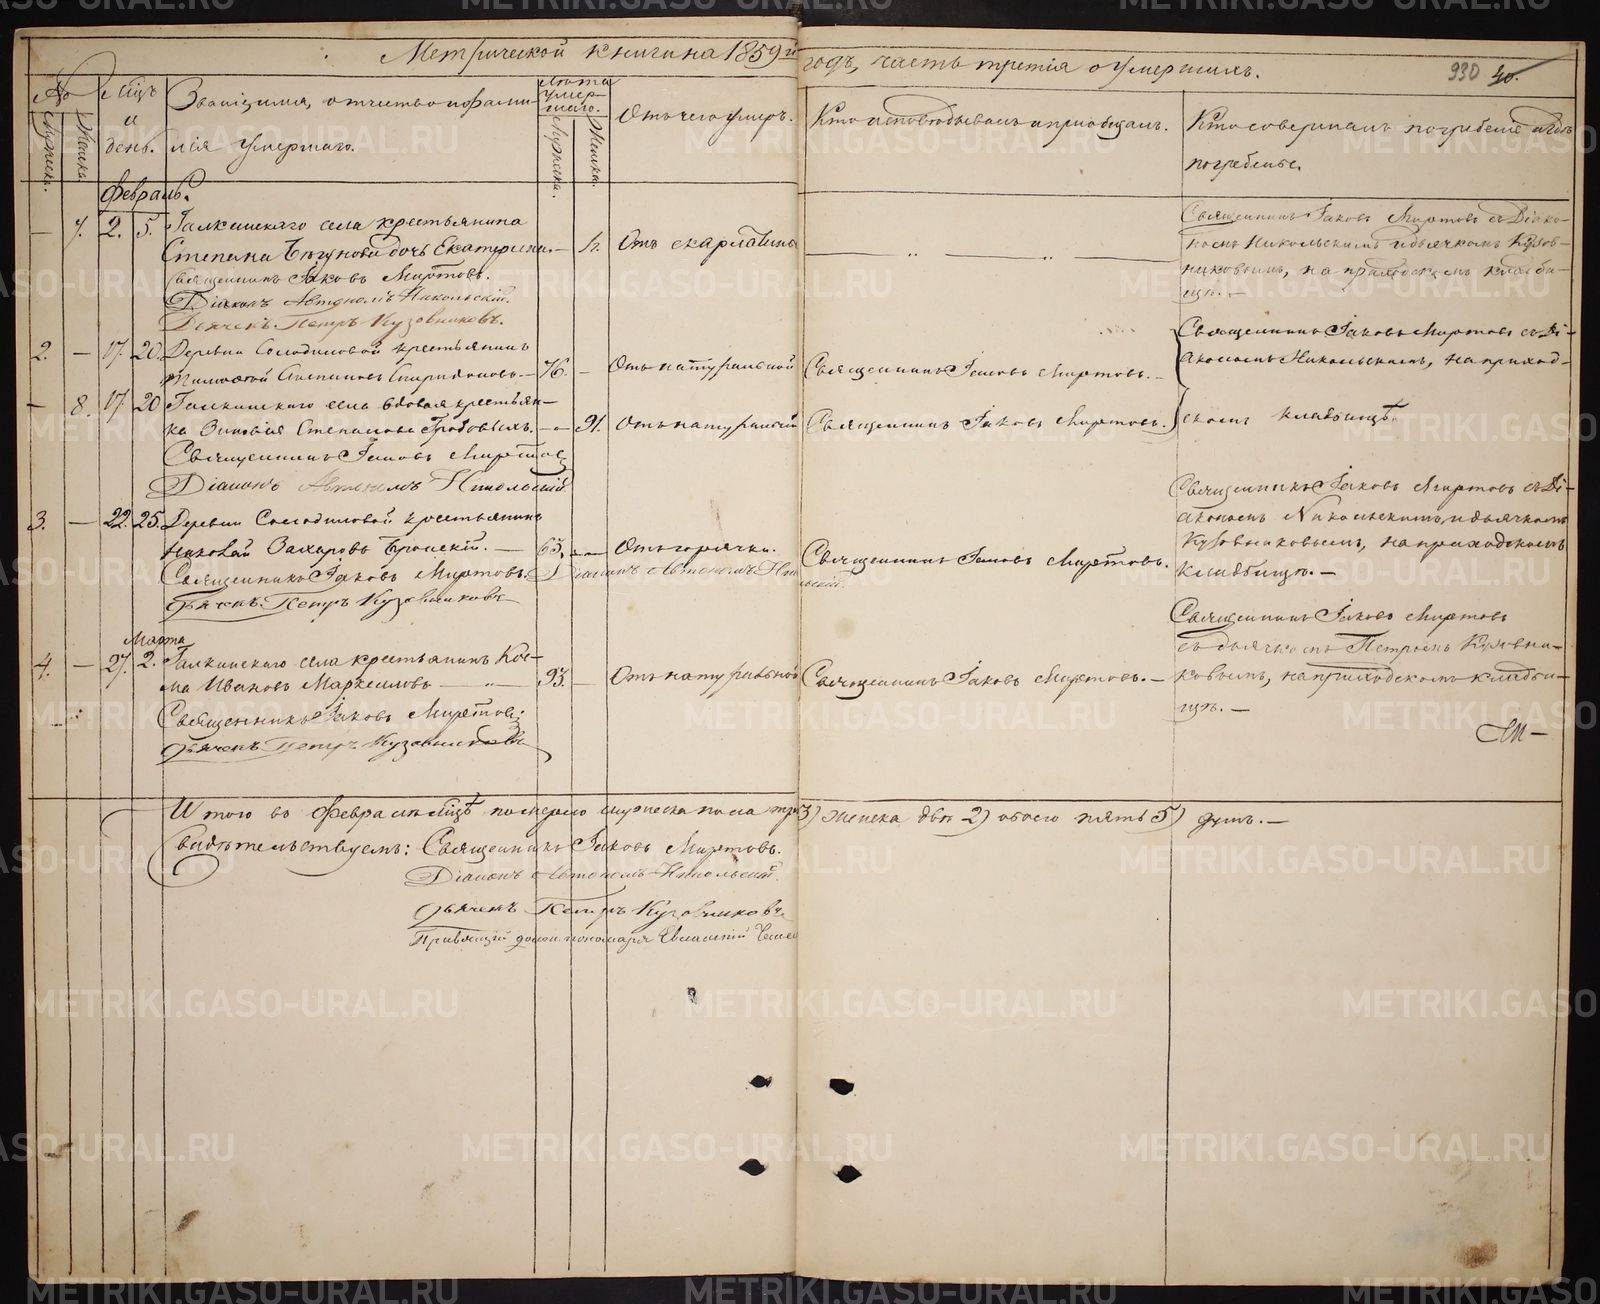 Метрической книги на 1859й годъ, часть третія о умершихъ.
930 40.
№
Мужеск.
Женска.
Мсцъ и день.
Званіе, имя, отчество и фамилія умершаго.
Лѣта умершаго.
Мужска.
Женска.
Отъ чего умеръ.
Кто исповѣдывалъ и пріобщалъ.
Кто совершалъ погребеніе и гдѣ погребены.
Февраль.
— 7. 2. 5. Галкинскаго села крестьянина
Степана Бѣгунова дочь Екатерина. — Отъ скарлатины
Священникъ Іаковъ Миртовъ.
Діаконъ Автономъ Никольскій.
Дьячекъ Петръ Кузовниковъ.
Священникъ Іаковъ Миртовъ съ Діако-
номъ Никольскимъ и дьячкомъ Кузов-
никовымъ, на приходскомъ кладби-
щѣ. —
2. — 17. 20. Деревни Солодиловой крестьянинъ
Спиридоновъ. — 76. — Отъ натуральной Священникъ Іаковъ Миртовъ. —
Священникъ Іаковъ Миртовъ съ Ді-
акономъ Никольскимъ, на приход-
— 8. 17. 20 Галкинскаго села вдовая крестьян-
ка Зиновія Степанова Гробовыхъ. — 91. Отъ натуральной Священникъ Іаковъ Миртовъ.
скомъ кладбищѣ.
Священникъ Іаковъ Миртовъ
Діаконъ Автономъ Никольскій
3. — 22. 25. Деревни Солодиловой крестьянинъ
Николай Захаровъ — 65. — Отъ горячки. Священникъ Іаковъ Миртовъ.
Священникъ Іаковъ Миртовъ. Діаконъ Автономъ Никольскій
Дьячекъ Петръ Кузовниковъ
Священникъ Іаковъ Миртовъ съ Ді-
акономъ Никольскимъ, и дьячкомъ
Кузовниковымъ, на приходскомъ
кладбищѣ. —
Марта
4. — 27. 2. Галкинскаго села крестьянинъ Кос-
ма Ивановъ Маркеловъ — 93. — Отъ натуральной Священникъ Іаковъ Миртовъ. —
Священникъ Іаковъ Миртовъ
Дьячекъ Петръ Кузовниковъ
Священникъ Іаковъ Миртовъ
съ дьячкомъ Петромъ Кузовни-
ковымъ, на приходскомъ кладби-
щѣ. —
Итого въ Февралѣ мсцѣ померло мужеска пола три 3) женска двѣ 2) обоего пять 5) душъ. —
Свидѣтельствуемъ: Священникъ Іаковъ Миртовъ.
Діаконъ Автономъ Никольскій.
Дьячекъ Петръ Кузовниковъ
METRIKI.GASO-URAL.RU